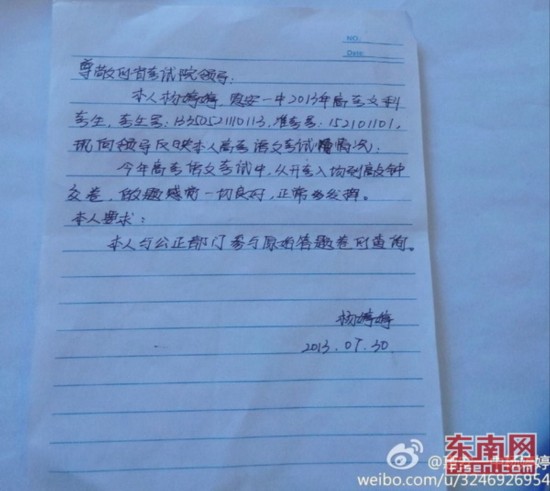 NO:
Date:
尊敬的省考试院领导:
本人杨婷婷,惠安一中2013年高考文科
考生,考生号:13350521110113,准考号:152101101,
现向领导反映本人高考语文考试情况:
今年高考语文考试中,从开考入场到敲钟
交卷,做题感觉一切良好,正常发挥。
本人要求:
本人与公正部门参与原始答题卷的查询。
杨婷婷
2013.07.30
东南网
FJSEN.COM
weibo.com/u/3246926954